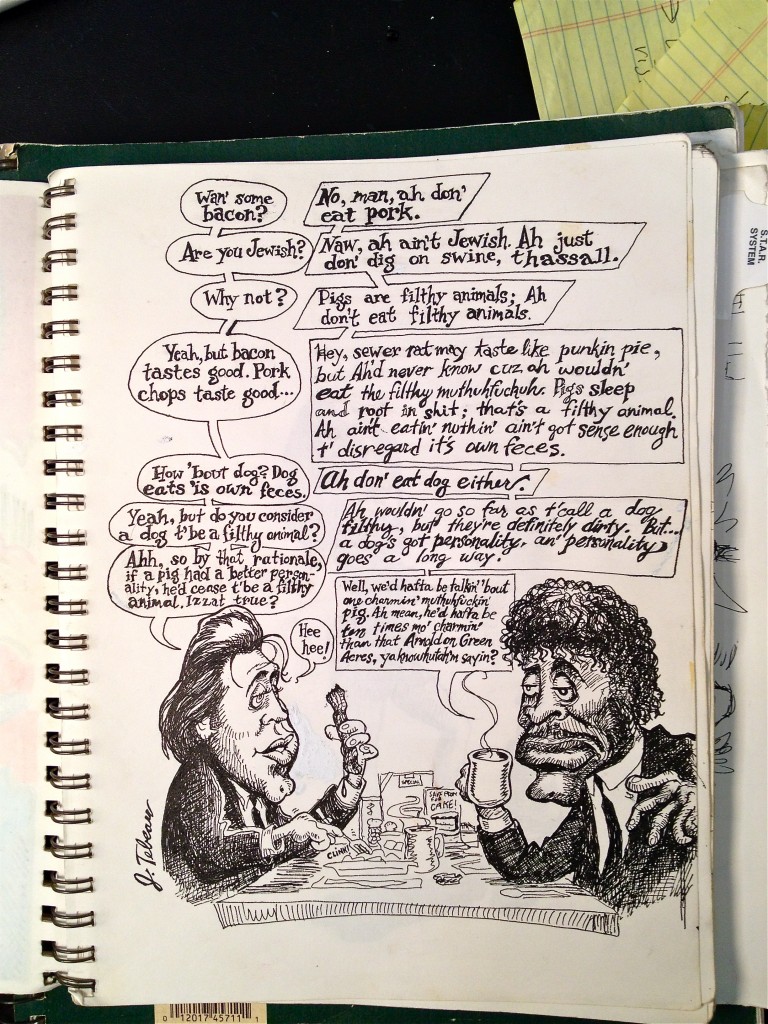 Wan' some
bacon?
No, man, ah don'
eat pork.
Are you Jewish?
Naw, ah ain't Jewish. Ah just
don' dig on swine, thassall.
Why not?
Pigs are filthy animals; Ah
don't eat filthy animals.
Yeah, but bacon
tastes good. Pork
chops taste good...
Hey, sewer rat may taste like punkin pie,
but Ah'd never know cuz ah wouldn'
eat the filthy muthuhfuchuh. Pigs sleep
and root in shit; that's a filthy animal.
Ah ain't eatin' nuthin' ain't got sense enough
t' disregard it's own feces.
How 'bout dog? Dog
eats 'is own feces.
Ah don' eat dog either.
Yeah, but do you consider
a dog t'be a filthy animal?
Ah wouldn' go so far as t'call a dog
filthy, but they're definitely dirty. But...
a dog's got personality, an' personality
goes a long way.
Ahh, so by that rationale,
if a pig had a better person-
ality, he'd cease t'be a filthy
animal. Izzat true?
Well, we'd hafta be talkin' 'bout
one charmin' muthuhfuckin'
pig. Ah mean, he'd hafta be
ten times mo' charmin'
than that Arnold on Green
Acres, yaknowhutch'm sayin?
Hee
hee!
SPECIAL
SAVE ROOM
FOR
CAKE!
CLINK!
J. Tebeau
S.T.A.R.
SYSTEM
0 12017 45711 1